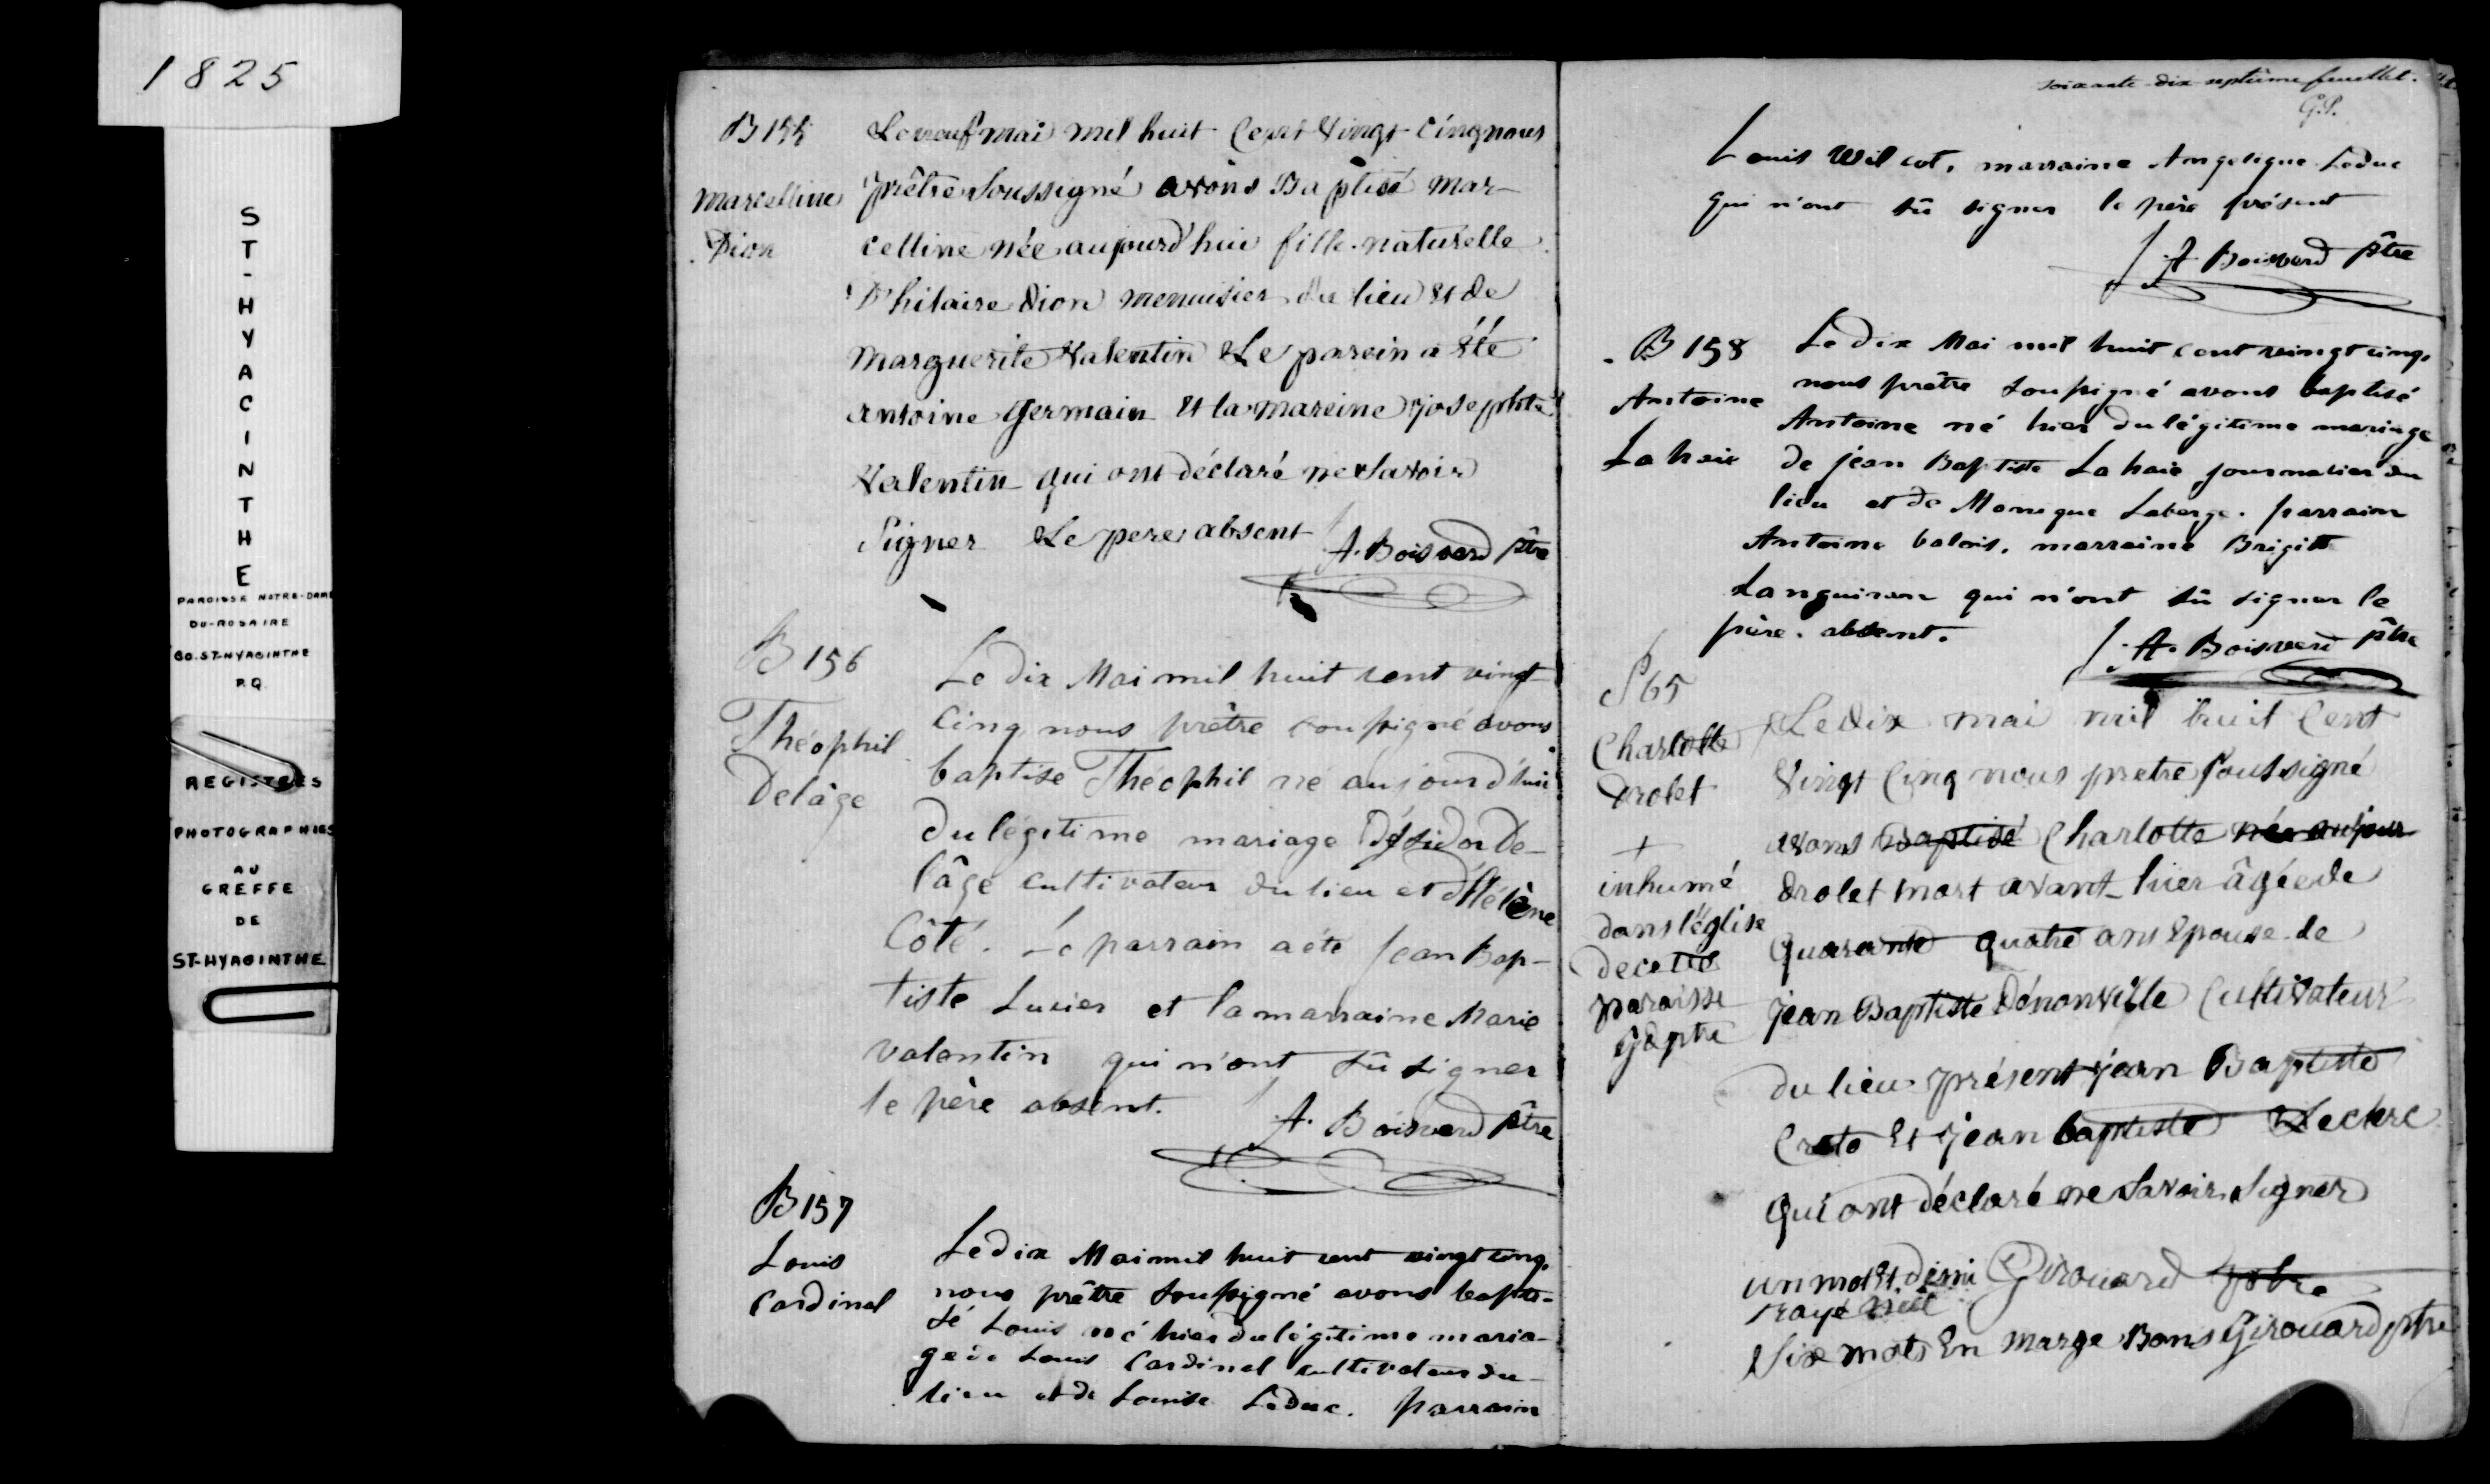 1825
ST-HYACINTHE
PAROISSE NOTRE-DAME
DU-ROSAIRE
CO. ST-HYACINTHE
P.Q.
REGISTRES
PHOTOGRAPHIES
AU
GREFFE
DE
ST-HYACINTHE
B 155
Marcelline
Dion
Le neuf mai mil huit Cent Vingt-Cinq nous
prêtre Soussigné avons Baptisé Mar-
celline née aujourd'hui fille naturelle
D'hilaire Dion menuisier du lieu Et de
Marguerite Valentin Le parein a Eté
antoine Germain Et la mareine josephte
Valentin qui ont déclaré ne Savoir
Signer Le pere absent
A. Boisverd ptre
B 156
Théophil
Delâge
Le dix Mai mil huit cent vingt
cinq nous prêtre soussigné avons
baptisé Théophil né aujourd'hui
du légitime mariage D'Isidor De-
lâge cultivateur du lieu et d'Hélène
Côté. Le parrain a été Jean Bap-
tiste Lucier et la marraine Marie
Valentin qui n'ont sû signer
le père absent.
A. Boisverd ptre
B 157
Louis
Cardinal
Le dix Mai mil huit cent vingt cinq
nous prêtre soussigné avons bapti-
sé Louis né hier du légitime maria-
ge de Louis Cardinal cultivateur du
lieu et de Louise Leduc. parrain
soixante-dix septième feuillet.
G.P.
Louis Wilcot, marraine Angelique Leduc
qui n'ont sû signer le père présent
A. Boisverd ptre
B 158
Antoine
Lahaie
Le dix Mai mil huit cent vingt cinq
nous prêtre soussigné avons baptisé
Antoine né hier du légitime mariage
de jean Baptiste Lahaie journalier du
lieu et de Monique Laberge. parrain
Antoine valois, marraine Brigitte
Languiran qui n'ont sû signer le
père absent.
A. Boisverd ptre
S 65
Charlotte
Drolet
+
inhumé
dans l'église
de cette
paroisse
Le dix mai mil huit Cent
Vingt Cinq nous pretre Soussigné
avons Baptisé Charlotte née aujour
Drolet mort avant-hier âgée de
Quarante quatre ans Epouse de
jean Baptiste Dénonville Cultivateur
du lieu présent jean Baptiste
Coto Et jean baptiste Leclerc
Qui ont déclaré ne Savoir Signer
un mot Et demi
rayé nul
Girouard ptre
Six mots En marge Bons Girouard ptre